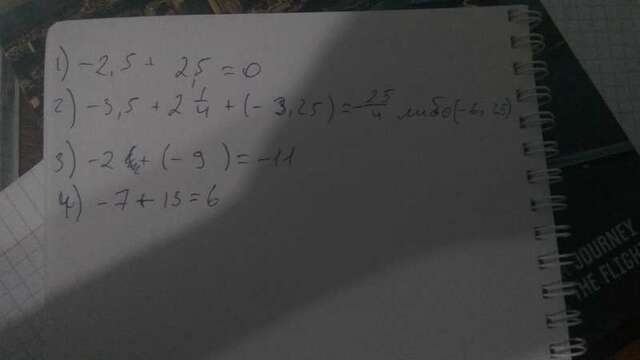 1) -2,5 + 2,5 = 0
2) -3,5 + 2 1/4 + (- 3,25) = -25/4 либо (-6,25)
3) -2 + (- 9) = -11
4) -7 + 13 = 6
JOURNEY
THE FLIGHT